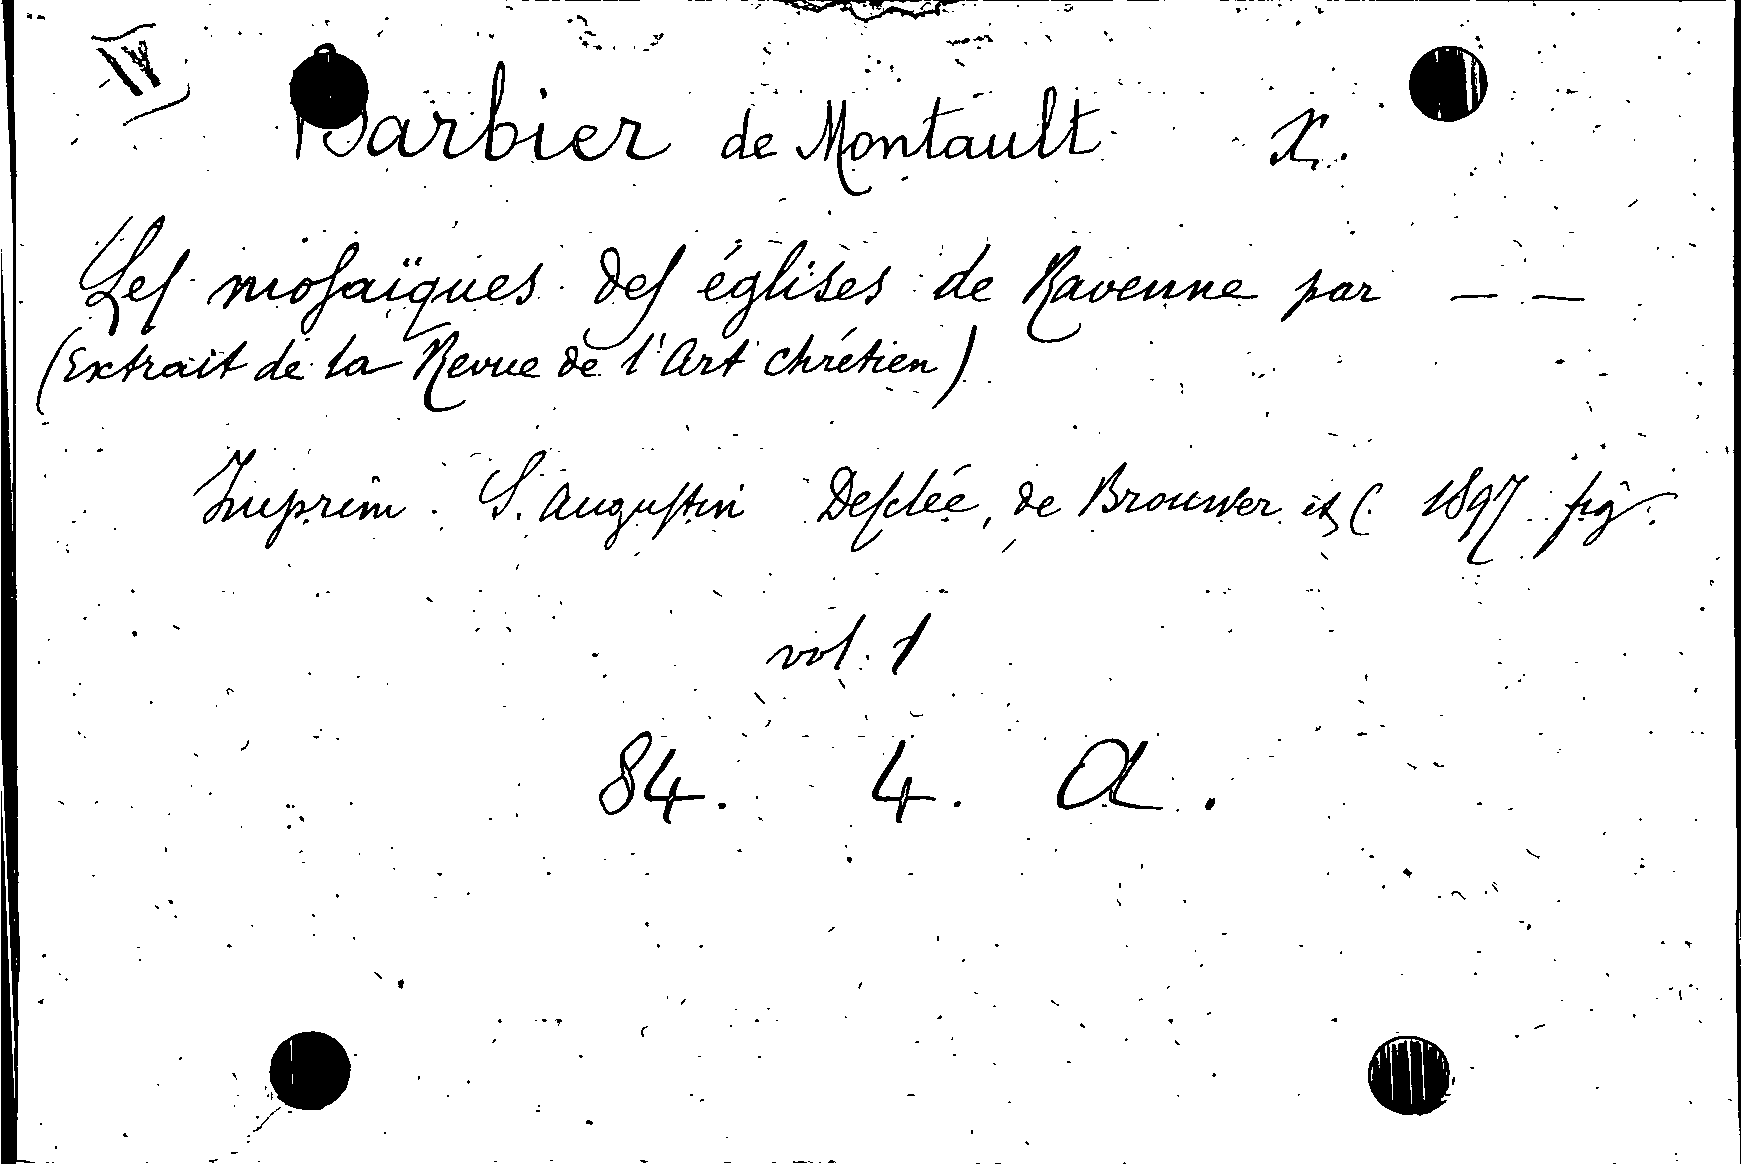 IV
Barbier de Montault X.
Les mosaïques des églises de Ravenne par — —
(Extrait de la Revue de l'Art chrétien)
Imprim. S. Augustin Desclée, de Brouwer et C. 1897 fig.
vol. 1
84. 4. A.